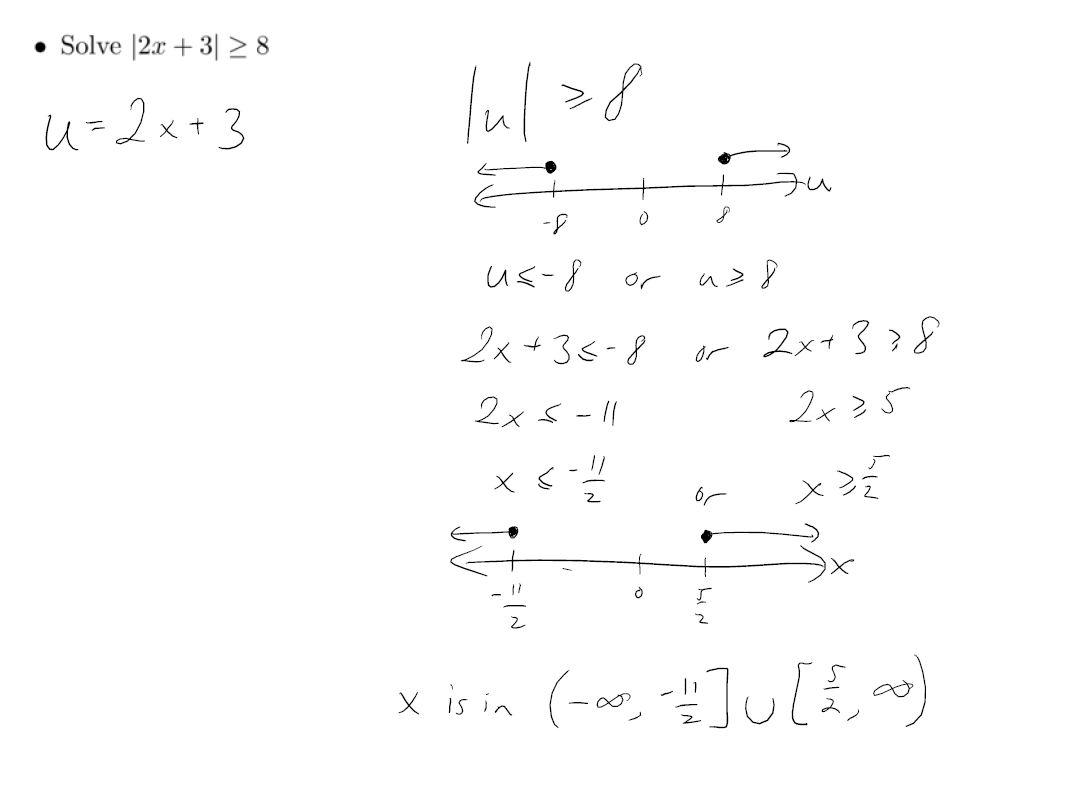 • Solve |2x + 3| ≥ 8
u = 2x + 3
|u| ≥ 8
u
-8 0 8
u ≤ -8 or u ≥ 8
2x + 3 ≤ -8 or 2x + 3 ≥ 8
2x ≤ -11 2x ≥ 5
x ≤ -11/2 or x ≥ 5/2
x
-11/2 0 5/2
x is in (-∞, -11/2] ∪ [5/2, ∞)